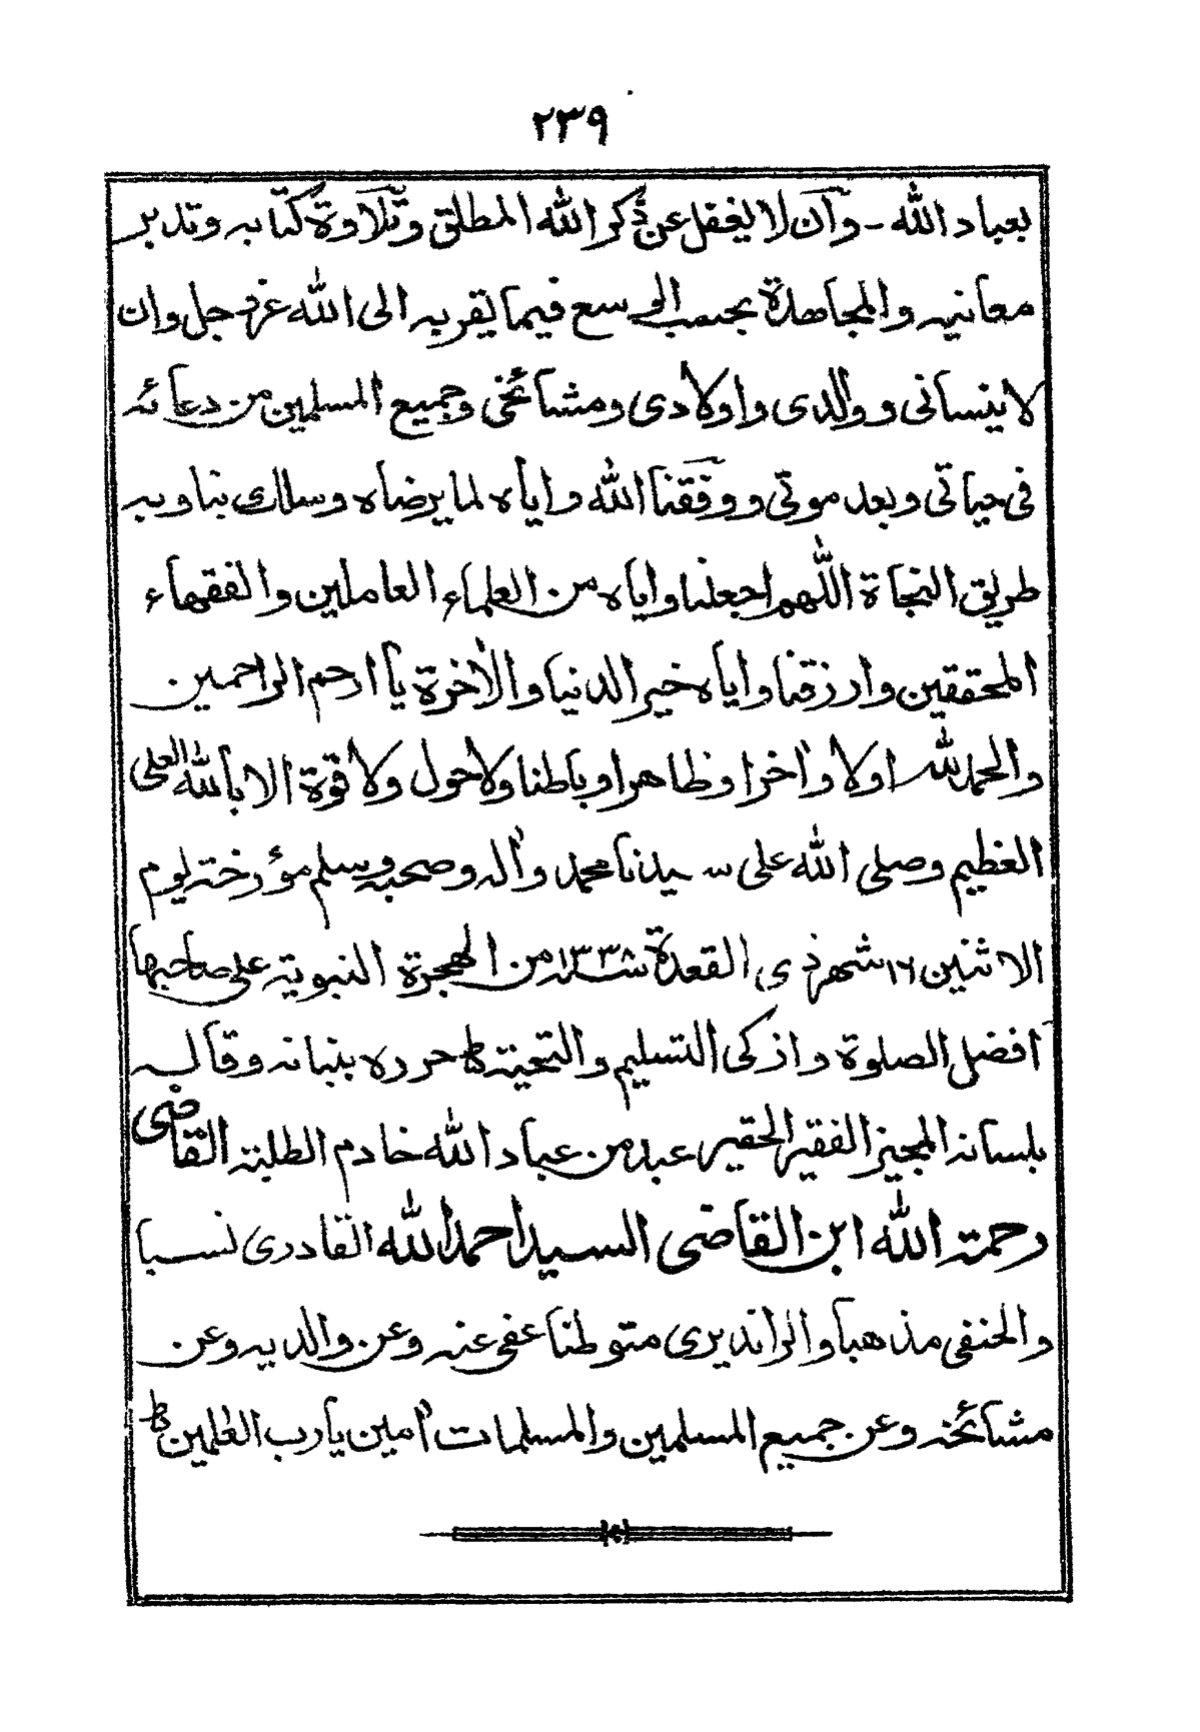 ٢٣٩
بعباد الله - وان لا يغفل عن ذكر الله المطلق وتلاوة كتابه وتدبر
معانيه والمجاهدة بحسب الوسع فيما يقربه الى الله عز وجل وان
لا ينسانى ووالدى واولادى ومشائخى وجميع المسلمين من دعائه
فى حياتى وبعد موتى ووفقنا الله واياه لما يرضاه وسلك بنا وبه
طريق النجاة اللهم اجعلنا واياه من العلماء العاملين والفقهاء
المحققين وارزقنا واياه خير الدنيا والاٰخرة يا ارحم الراحمين
والحمد لله اولا واٰخرا وظاهرا وباطنا ولا حول ولا قوة الا بالله العلى
العظيم وصلى الله على سيدنا محمد واٰله وصحبه وسلم مؤرخته ليوم
الاثنين ١٦ شهر ذى القعدة سنة ١٣٣٨ من الهجرة النبوية على صاحبها
افضل الصلوة وازكى التسليم والتحية ط حرره ببنانه وقاله
بلسانه المجيز الفقير الحقير عبد من عباد الله خادم الطلبة القاضى
رحمة الله ابن القاضى السيد احمد الله القادرى نسبا
والحنفى مذهبا والراندیرى متوطنا عفى عنه وعن والديه وعن
مشائخه وعن جميع المسلمين والمسلمات اٰمين يا رب العٰلمين ط